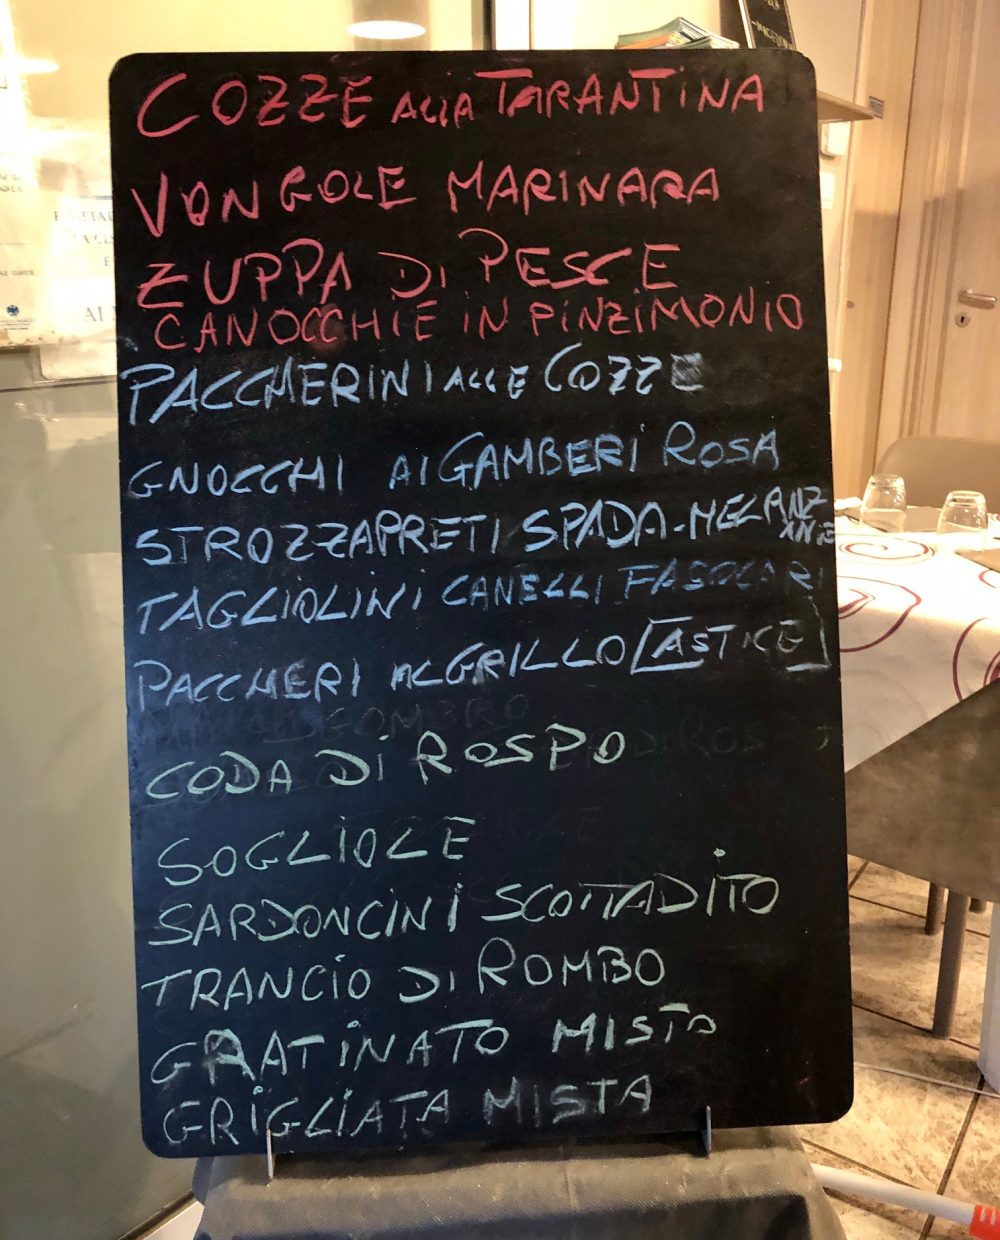 COZZE ALLA TARANTINA
VONGOLE MARINARA
ZUPPA DI PESCE
CANOCCHIE IN PINZIMONIO
PACCHERINI ALLE COZZE
GNOCCHI AI GAMBERI ROSA
STROZZAPRETI SPADA-MELANZ
ANE
TAGLIOLINI CANELLI FASOLARI
PACCHERI AL GRILLO [ASTICE]
CODA DI ROSPO
SOGLIOLE
SARDONCINI SCOTTADITO
TRANCIO DI ROMBO
GRATINATO MISTO
GRIGLIATA MISTA